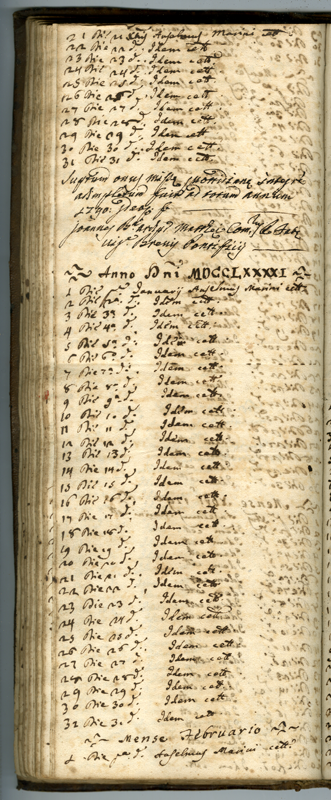 21 Die 21 d. Anselmus Masini cett.
22 Die 22 d. Idem cett
23 Die 23 d. Idem cett
24 Die 24 d. Idem cett
25 Die 25 d. Idem cett
26 Die 26 d. Idem cett
27 Die 27 d. Idem cett
28 Die 28 d. Idem cett.
29 Die 29 d. Idem cett
30 Die 30 d. Idem cett.
31 Die 31 d. Idem cett.
onus quotidianae
adimpletum fuit ad totum annum
1790.
Joannes
Brevis Pontificij
Anno Dni MDCCLXXXXI
1 Die pa Januarij Anselmus Masini cett.
2 Die 2a d. Idem cett.
3 Die 3a d. Idem cett.
4 Die 4a d. Idem cett.
5 Die 5a d. Idem cett
6 Die 6a d. Idem cett.
7 Die 7a d. Idem cett
8 Die 8a d. Idem cett.
9 Die 9a d. Idem cett.
10 Die 10 d. Idem cett.
11 Die 11 d. Idem cett.
12 Die 12 d. Idem cett.
13 Die 13 d. Idem cett.
14 Die 14 d. Idem cett.
15 Die 15 d. Idem cett.
16 Die 16 d. Idem cett.
17 Die 17 d. Idem cett.
18 Die 18 d. Idem cett.
19 Die 19 d. Idem cett.
20 Die 20 d. Idem cett.
21 Die 21 d. Idem cett.
22 Die 22 d. Idem cett.
23 Die 23 d. Idem cett.
24 Die 24 d. Idem cett.
25 Die 25 d. Idem cett.
26 Die 26 d. Idem cett.
27 Die 27 d. Idem cett.
28 Die 28 d. Idem cett.
29 Die 29 d. Idem cett.
30 Die 30 d. Idem cett.
31 Die 31 d. Idem cett
Mense Februario
1 Die pa d. Anselmus Masini cett.